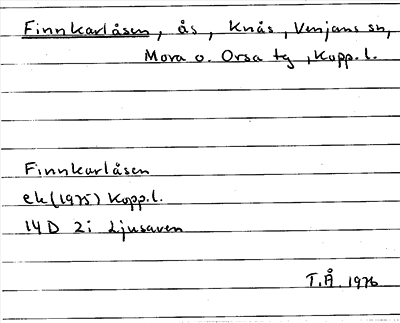 Finnkarlåsen, ås, Knås, Venjans sn,
Mora o. Orsa tg, Kopp.l.
Finnkarlåsen
ek (1975) Kopp.l.
14 D 2i Ljusaven
T.Å. 1976